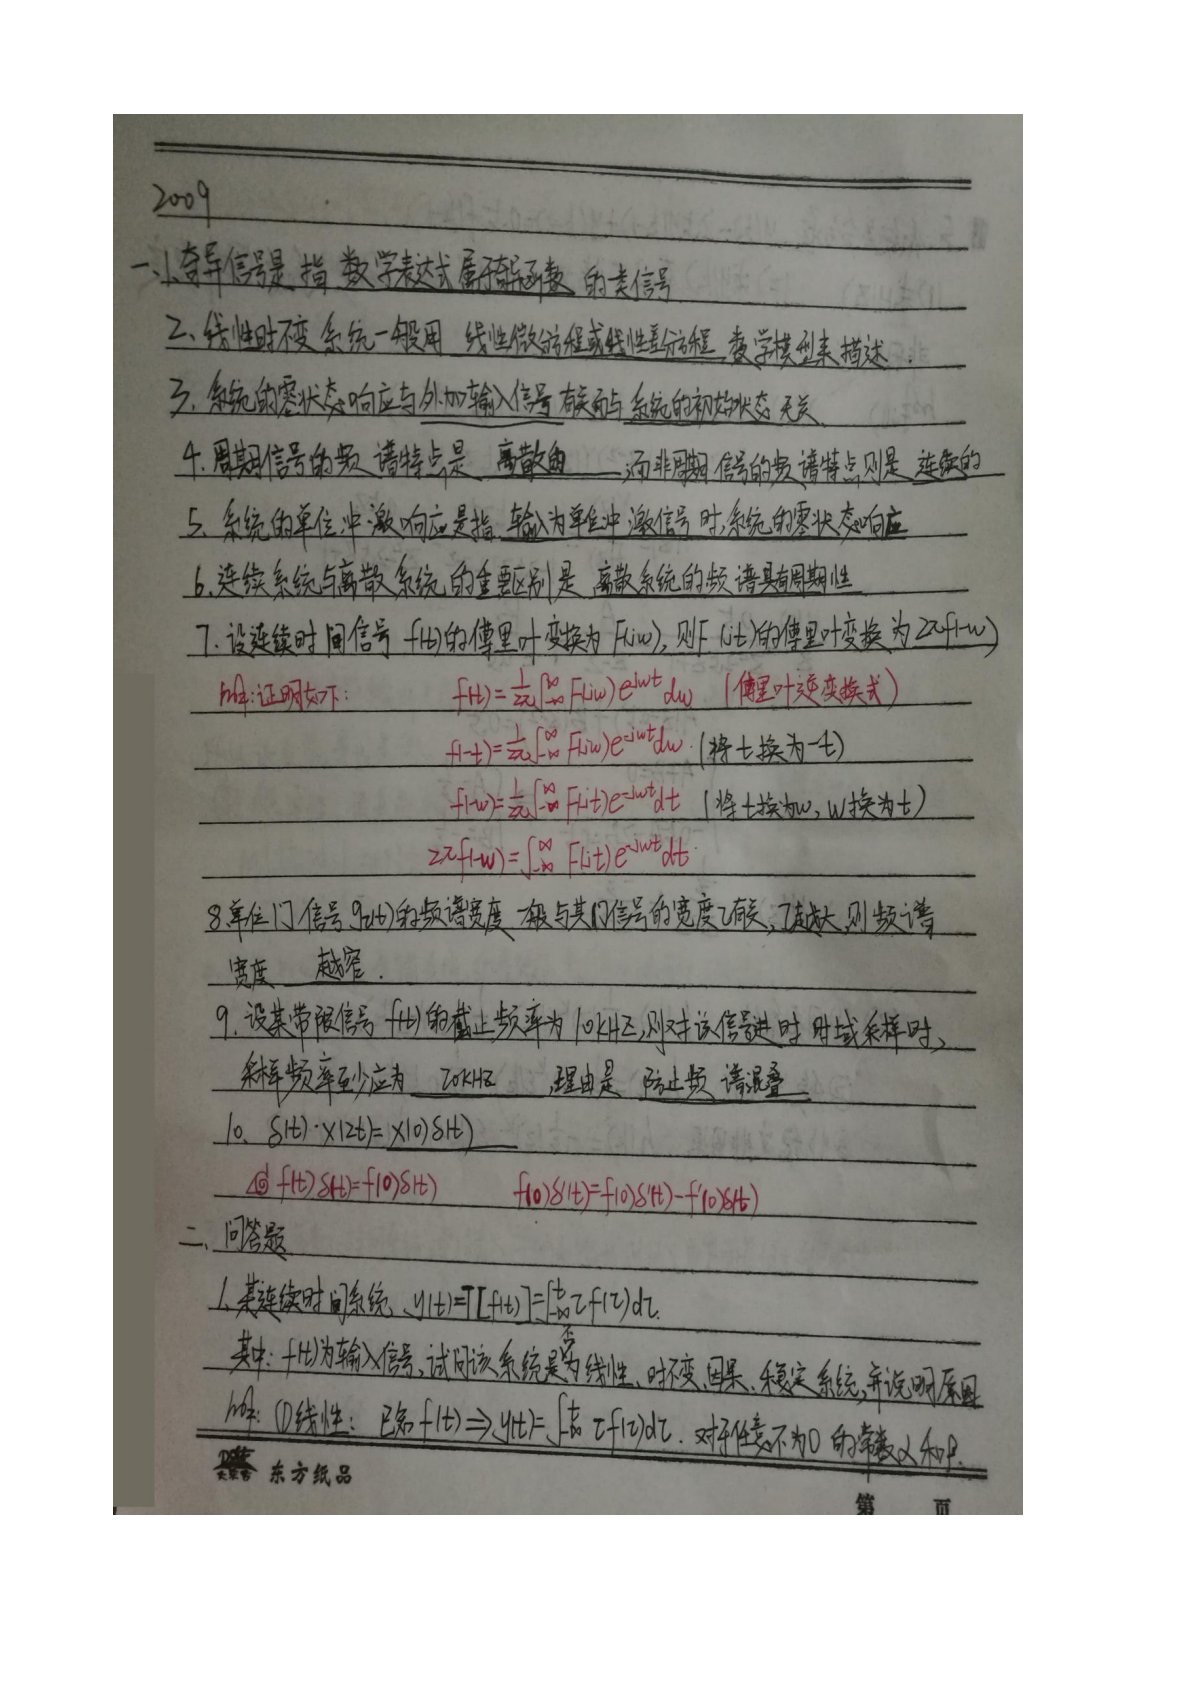 2009
一、1.奇异信号是 指 数学表达式属于奇异函数 的类信号
2、线性时不变系统一般用 线性微分方程或线性差分方程 数学模型来描述.
3、系统的零状态响应与外加输入信号有关而与系统的初始状态无关
4、周期信号的频谱特点是 离散的 ,而非周期信号的频谱特点则是 连续的
5、系统的单位冲激响应是指 输入为单位冲激信号时,系统的零状态响应
6、连续系统与离散系统的重要区别是 离散系统的频谱具有周期性
7、设连续时间信号 f(t)的傅里叶变换为F(jw),则F(jt)的傅里叶变换为2πf(-w)
解:证明如下: f(t)=1/2π∫_{-∞}^{∞}F(jw)e^{jwt}dw (傅里叶逆变换式)
f(-t)=1/2π∫_{-∞}^{∞}F(jw)e^{-jwt}dw.(将t换为-t)
f(-w)=1/2π∫_{-∞}^{∞}F(jt)e^{-jwt}dt (将t换为w,w换为t)
2πf(-w)=∫_{-∞}^{∞}F(jt)e^{-jwt}dt
8.单位门信号gτ(t)的频谱宽度一般与其门信号的宽度τ有关,τ越大,则频谱
宽度 越窄.
9、设某带限信号 f(t)的截止频率为10kHZ,则对该信号进时 时域采样时,
采样频率至少应为 20KHZ ,理由是 防止频谱混叠.
10、δ(t)·x(2t)=x(0)δ(t)
f(t)δ(t)=f(0)δ(t) f(0)δ'(t)=f(0)δ'(t)-f'(0)δ(t)
二、问答题
1、某连续时间系统、y(t)=T[f(t)]=∫_{-∞}^{t}τf(τ)dτ.
其中:f(t)为输入信号,试问该系统是否为线性、时不变、因果、稳定系统,并说明原因
解:①线性: 已知f(t)⇒y(t)=∫_{-∞}^{t}τf(τ)dτ.对于任意不为0的常数α和β.
东方纸品
第 页